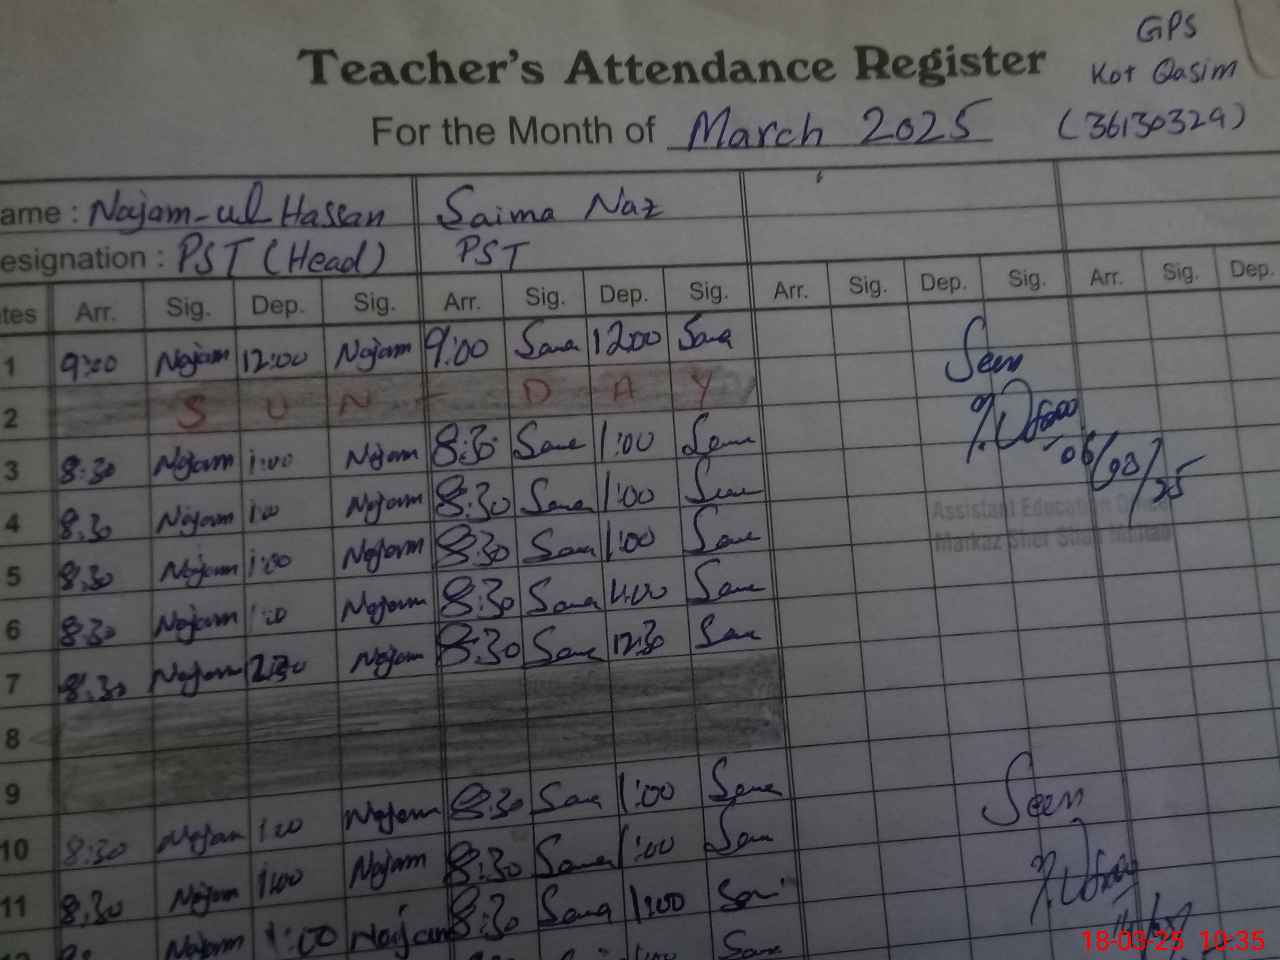 GPS
Teacher's Attendance Register
Kot Qasim
For the Month of March 2025 (36130329)
ame : Najam-ul Hassan Saima Naz
esignation : PST (Head) PST
tes Arr. Sig. Dep. Sig. Arr. Sig. Dep. Sig. Arr. Sig. Dep. Sig. Arr. Sig. Dep.
1 9:00 Najam 12:00 Najam 9:00 Sama 12:00 Sama
Seen
2 S U N - D A Y
3 8:30 Najam 1:00 Najam 8:30 Sama 1:00 Sama
06/03/25
4 8:30 Najam 1:00 Najam 8:30 Sama 1:00 Sama
Assistant Education
Markaz Sher Shah
5 8:30 Najam 1:00 Najam 8:30 Sama 1:00 Sama
6 8:30 Najam 1:00 Najam 8:30 Sama 1:00 Sama
7 8:30 Najam 12:30 Najam 8:30 Sama 12:30 Sama
8
9
Seen
10 8:30 Najam 1:00 Najam 8:30 Sama 1:00 Sama
11 8:30 Najam 1:00 Najam 8:30 Sama 1:00 Sama
Najam 1:00 Najam 8:30 Sama 1:00 Sama
18-03-25 10:35